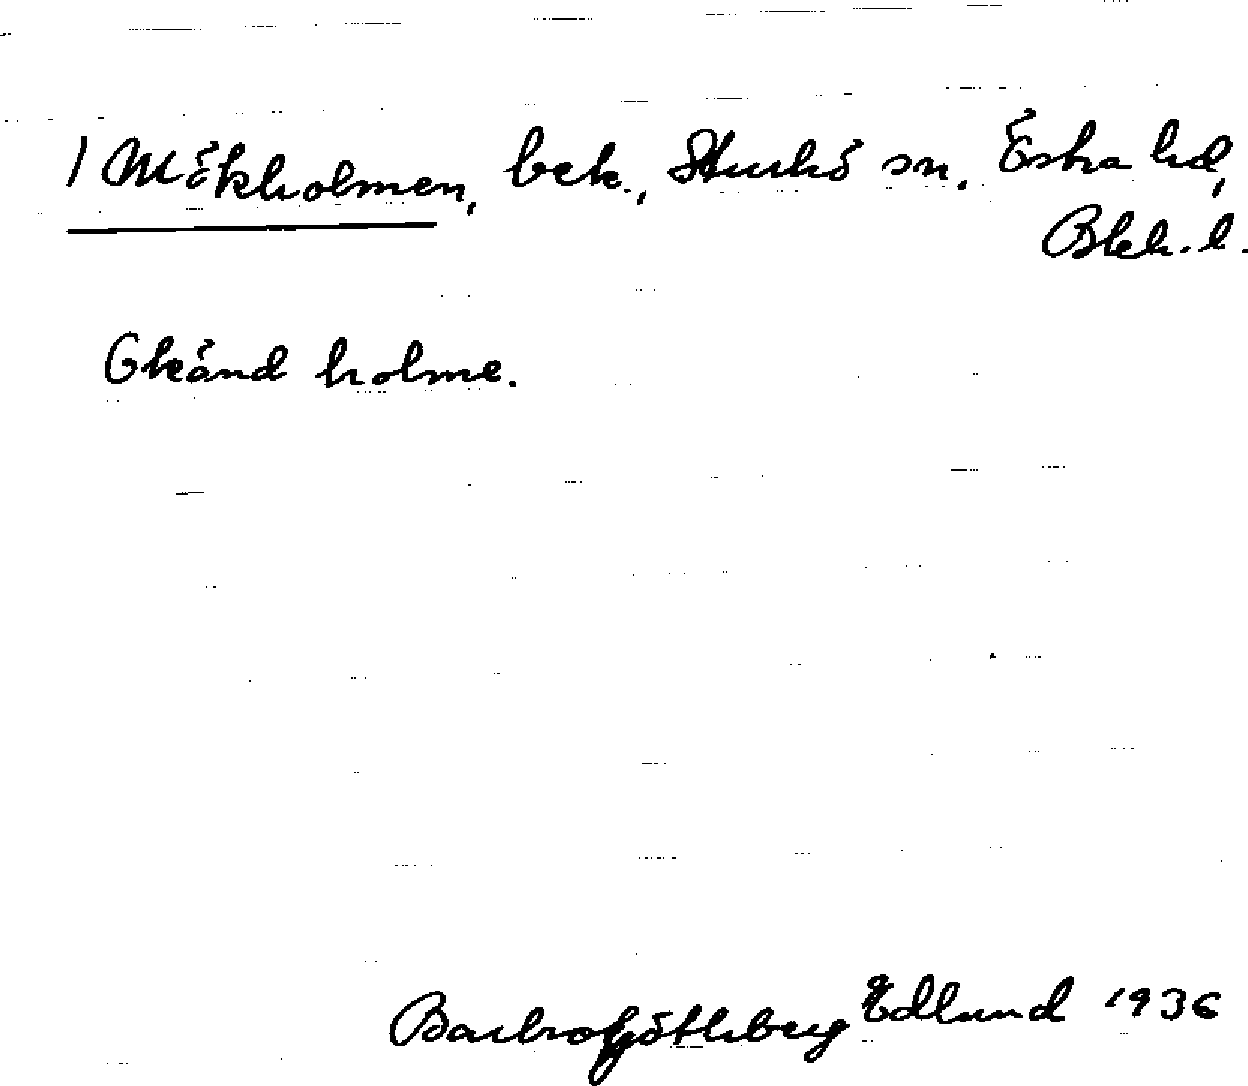 1 Mökholmen, bek., Sturkö sn, Östra hd,
Blek. l.
Okänd holme.
Barbro Götlberg Edlund 1936